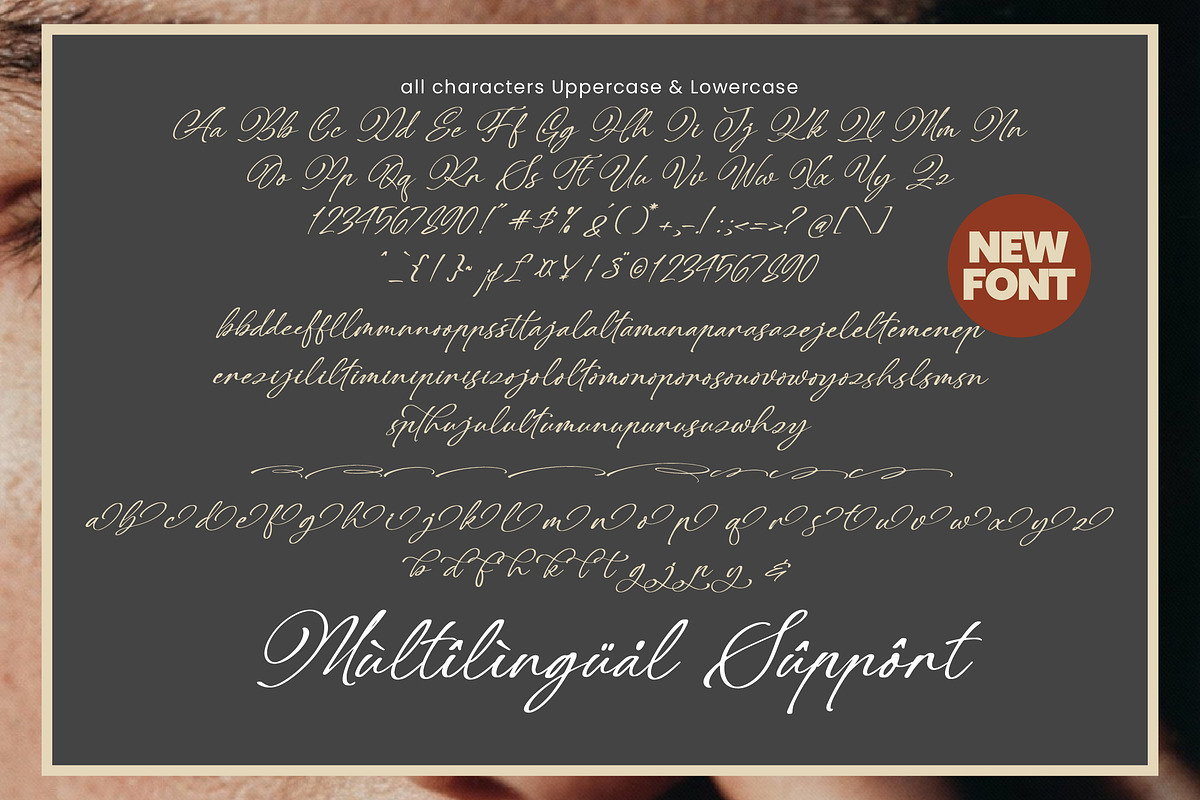 all characters Uppercase & Lowercase
Aa Bb Cc Dd Ee Ff Gg Hh Ii Jj Kk Ll Mm Nn
Oo Pp Qq Rr Ss Tt Uu Vv Ww Xx Yy Zz
1234567890!" #$%&'()*+,-./:;<=>?@[\]
^_`{|}~¡¢£¤¥¦§¨©1234567890
NEW
FONT
bbddeeffllmmnnooppssttajalaltamanaparasazejeleltemenep
erezijililtiminipirisizojololtomonoporosouovowoyozshslsmsn
spthujulultumunupurusuzwhzy
a b c d e f g h i j k l m n o p q r s t u v w x y z
b d f h k l t g j p y &
Mùltîlìngüål Sûppôrt